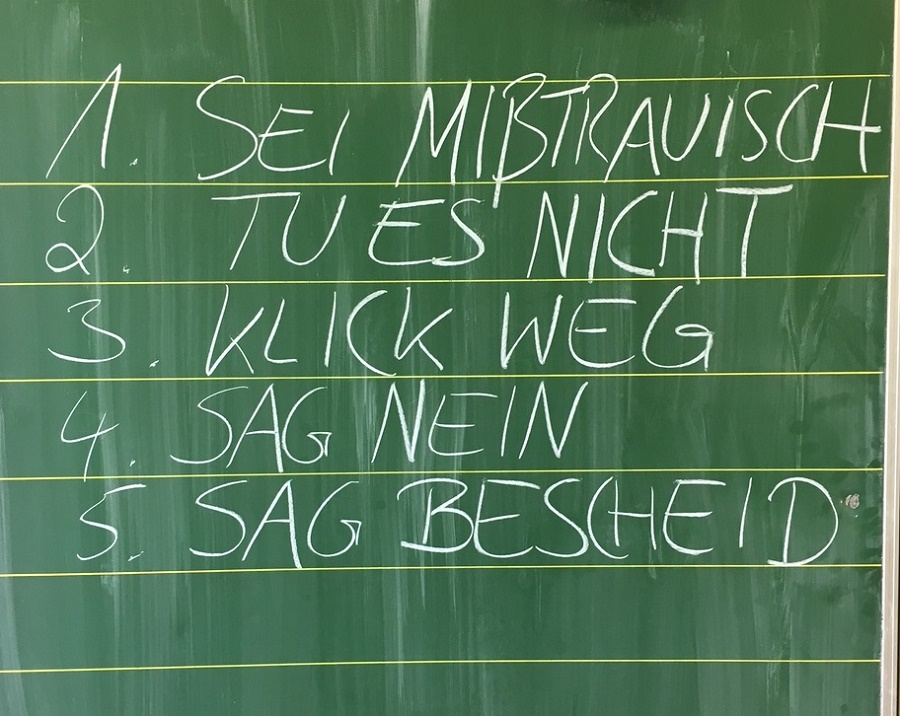 1. SEI MIßTRAUISCH
2. TU ES NICHT
3. KLICK WEG
4. SAG NEIN
5. SAG BESCHEID